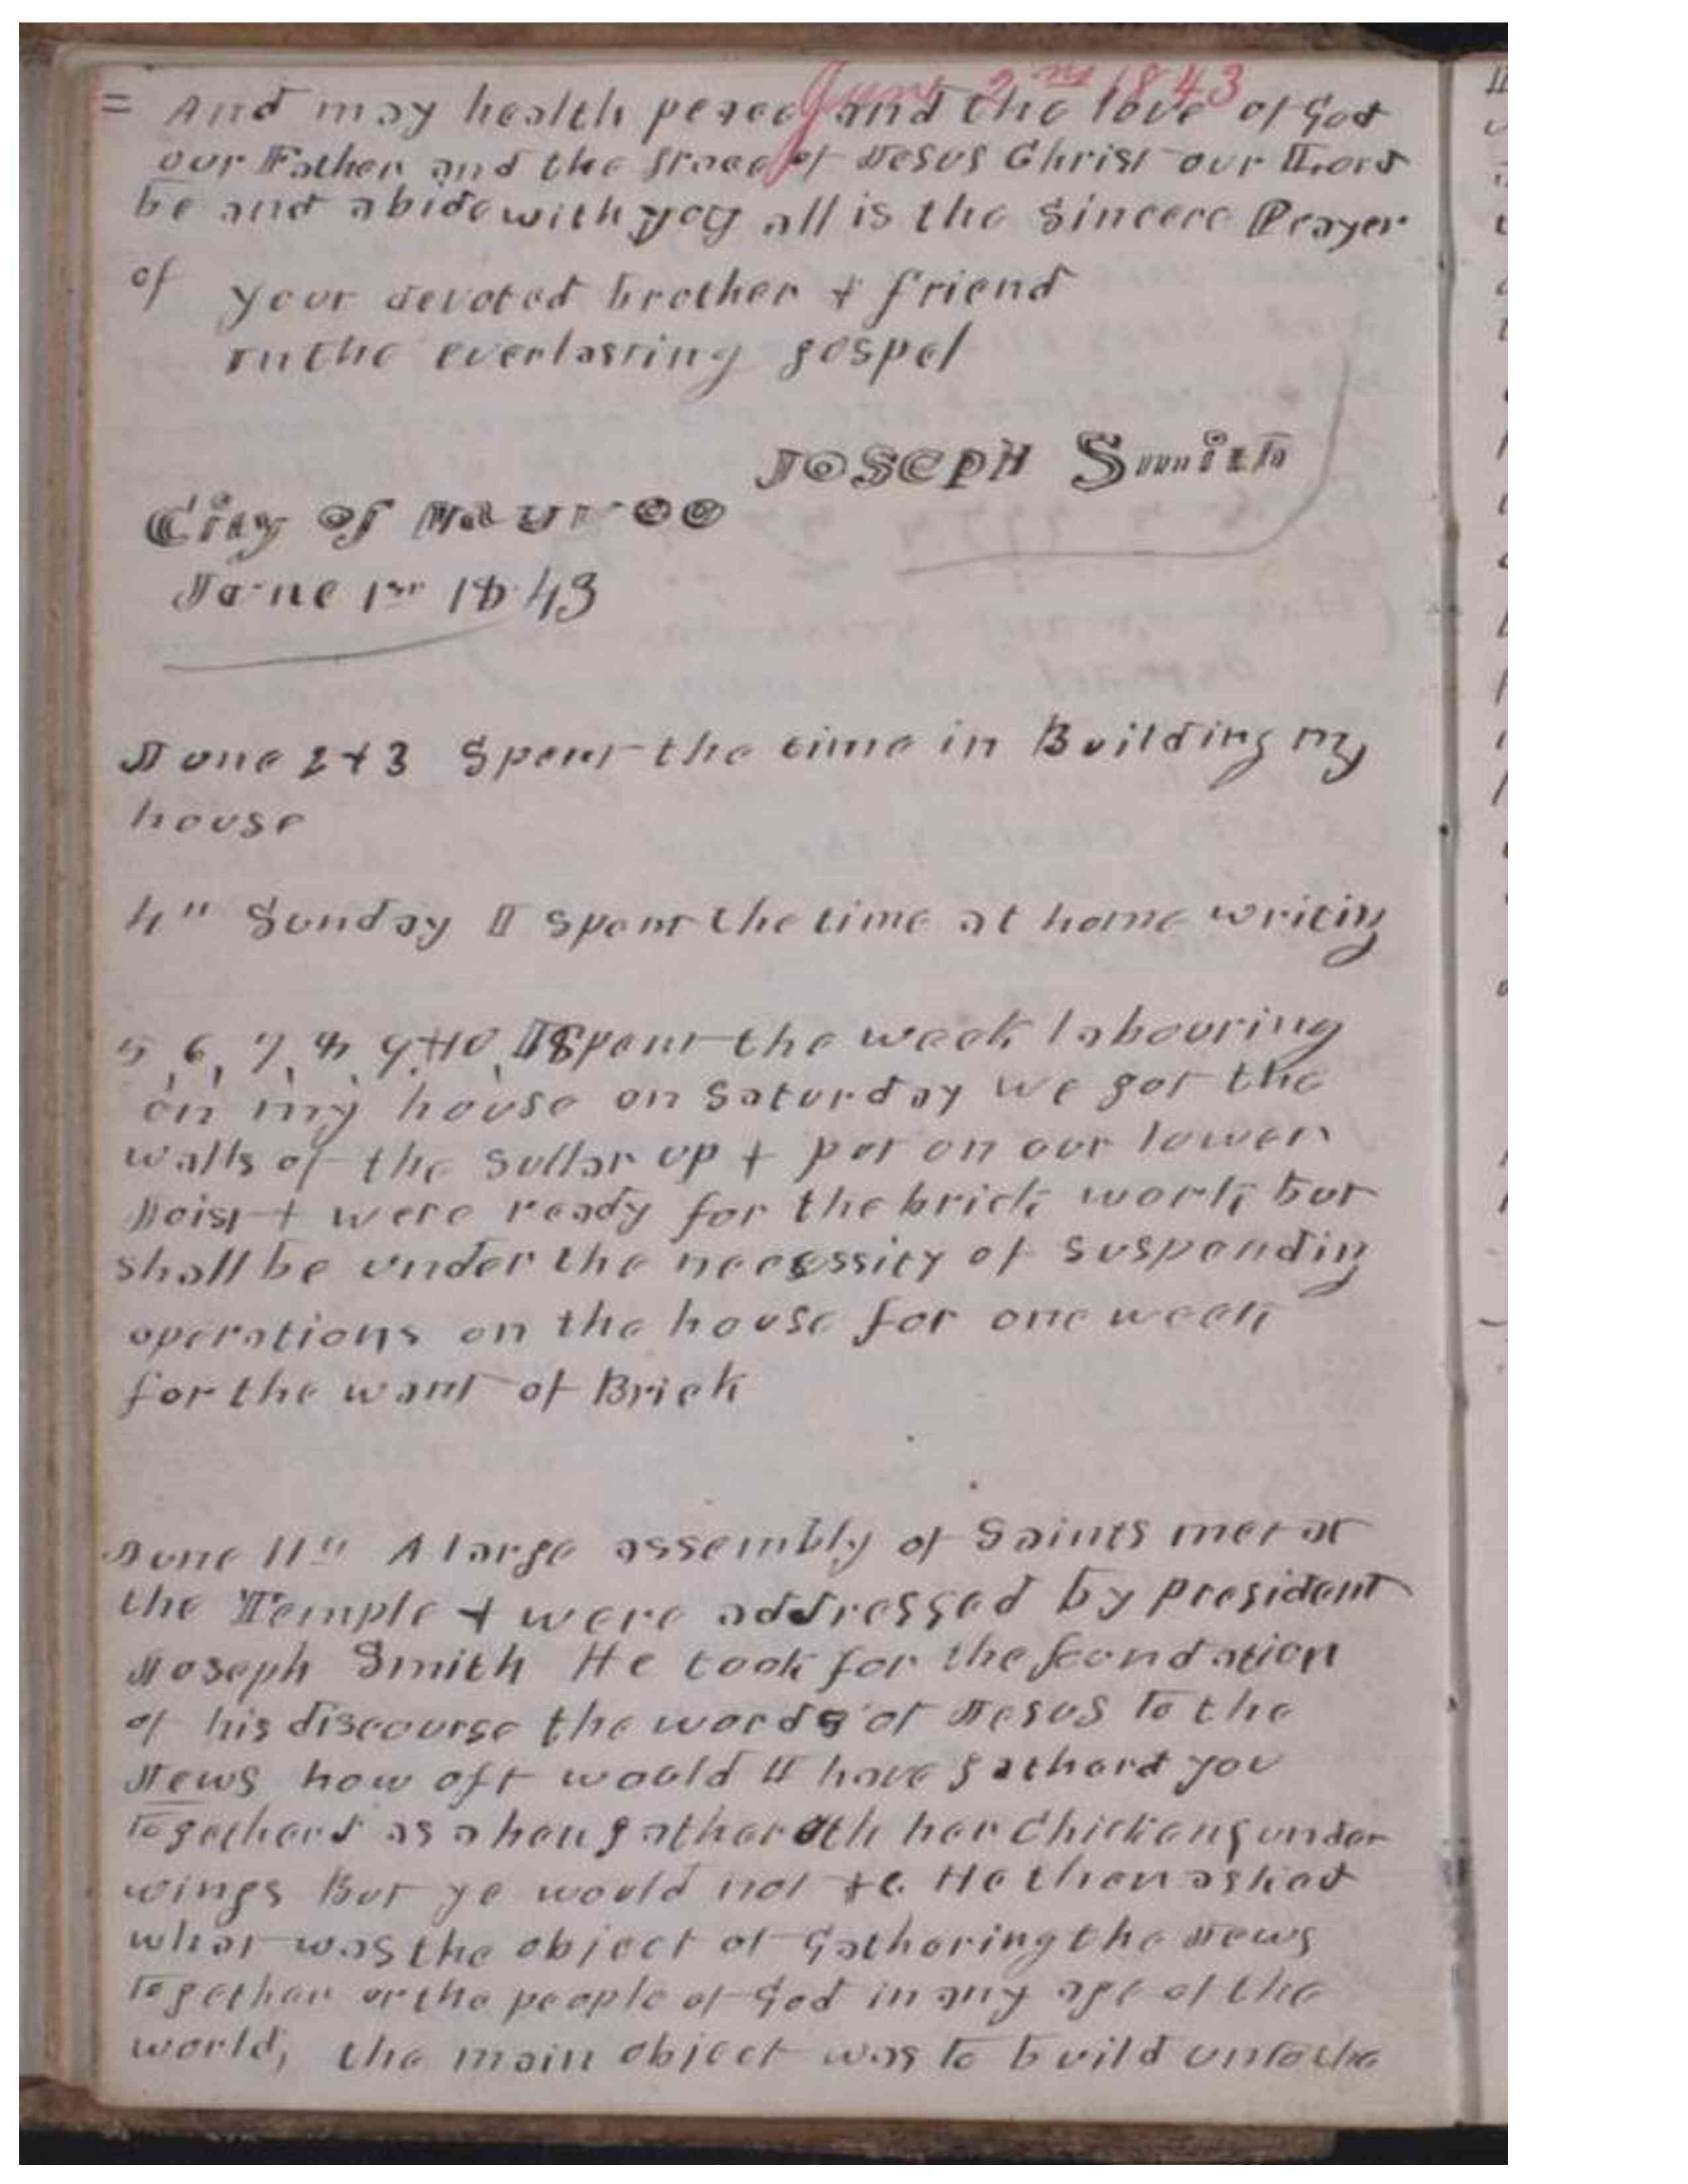 June 2nd 1843
= And may health peace and the love of God
our Father and the grace of Jesus Christ our Lord
be and abide with you all is the sincere Prayer
of your devoted brother + friend
in the everlasting gospel
JOSEPH Smith
City of Nauvoo
June 1st 1843
June 2 + 3 Spent the time in Building my
house
4" Sunday I spent the time at home writing
5, 6, 7, 8, 9, + 10, I Spent the week labouring
on my house on Saturday we got the
walls of the sullar up + put on our lower
Joist + were ready for the brick work but
shall be under the necessity of suspending
operations on the house for one week
for the want of Brick
June 11th A large assembly of Saints met at
the Temple + were addressed by president
Joseph Smith He took for the foundation
of his discourse the words of Jesus to the
Jews how oft would I have gatherd you
togetherd as a hen gathereth her Chickens under
wings But ye would not &c. He then asked
what was the object of Gathering the Jews
together or the people of God in any age of the
world, the main object was to build unto the